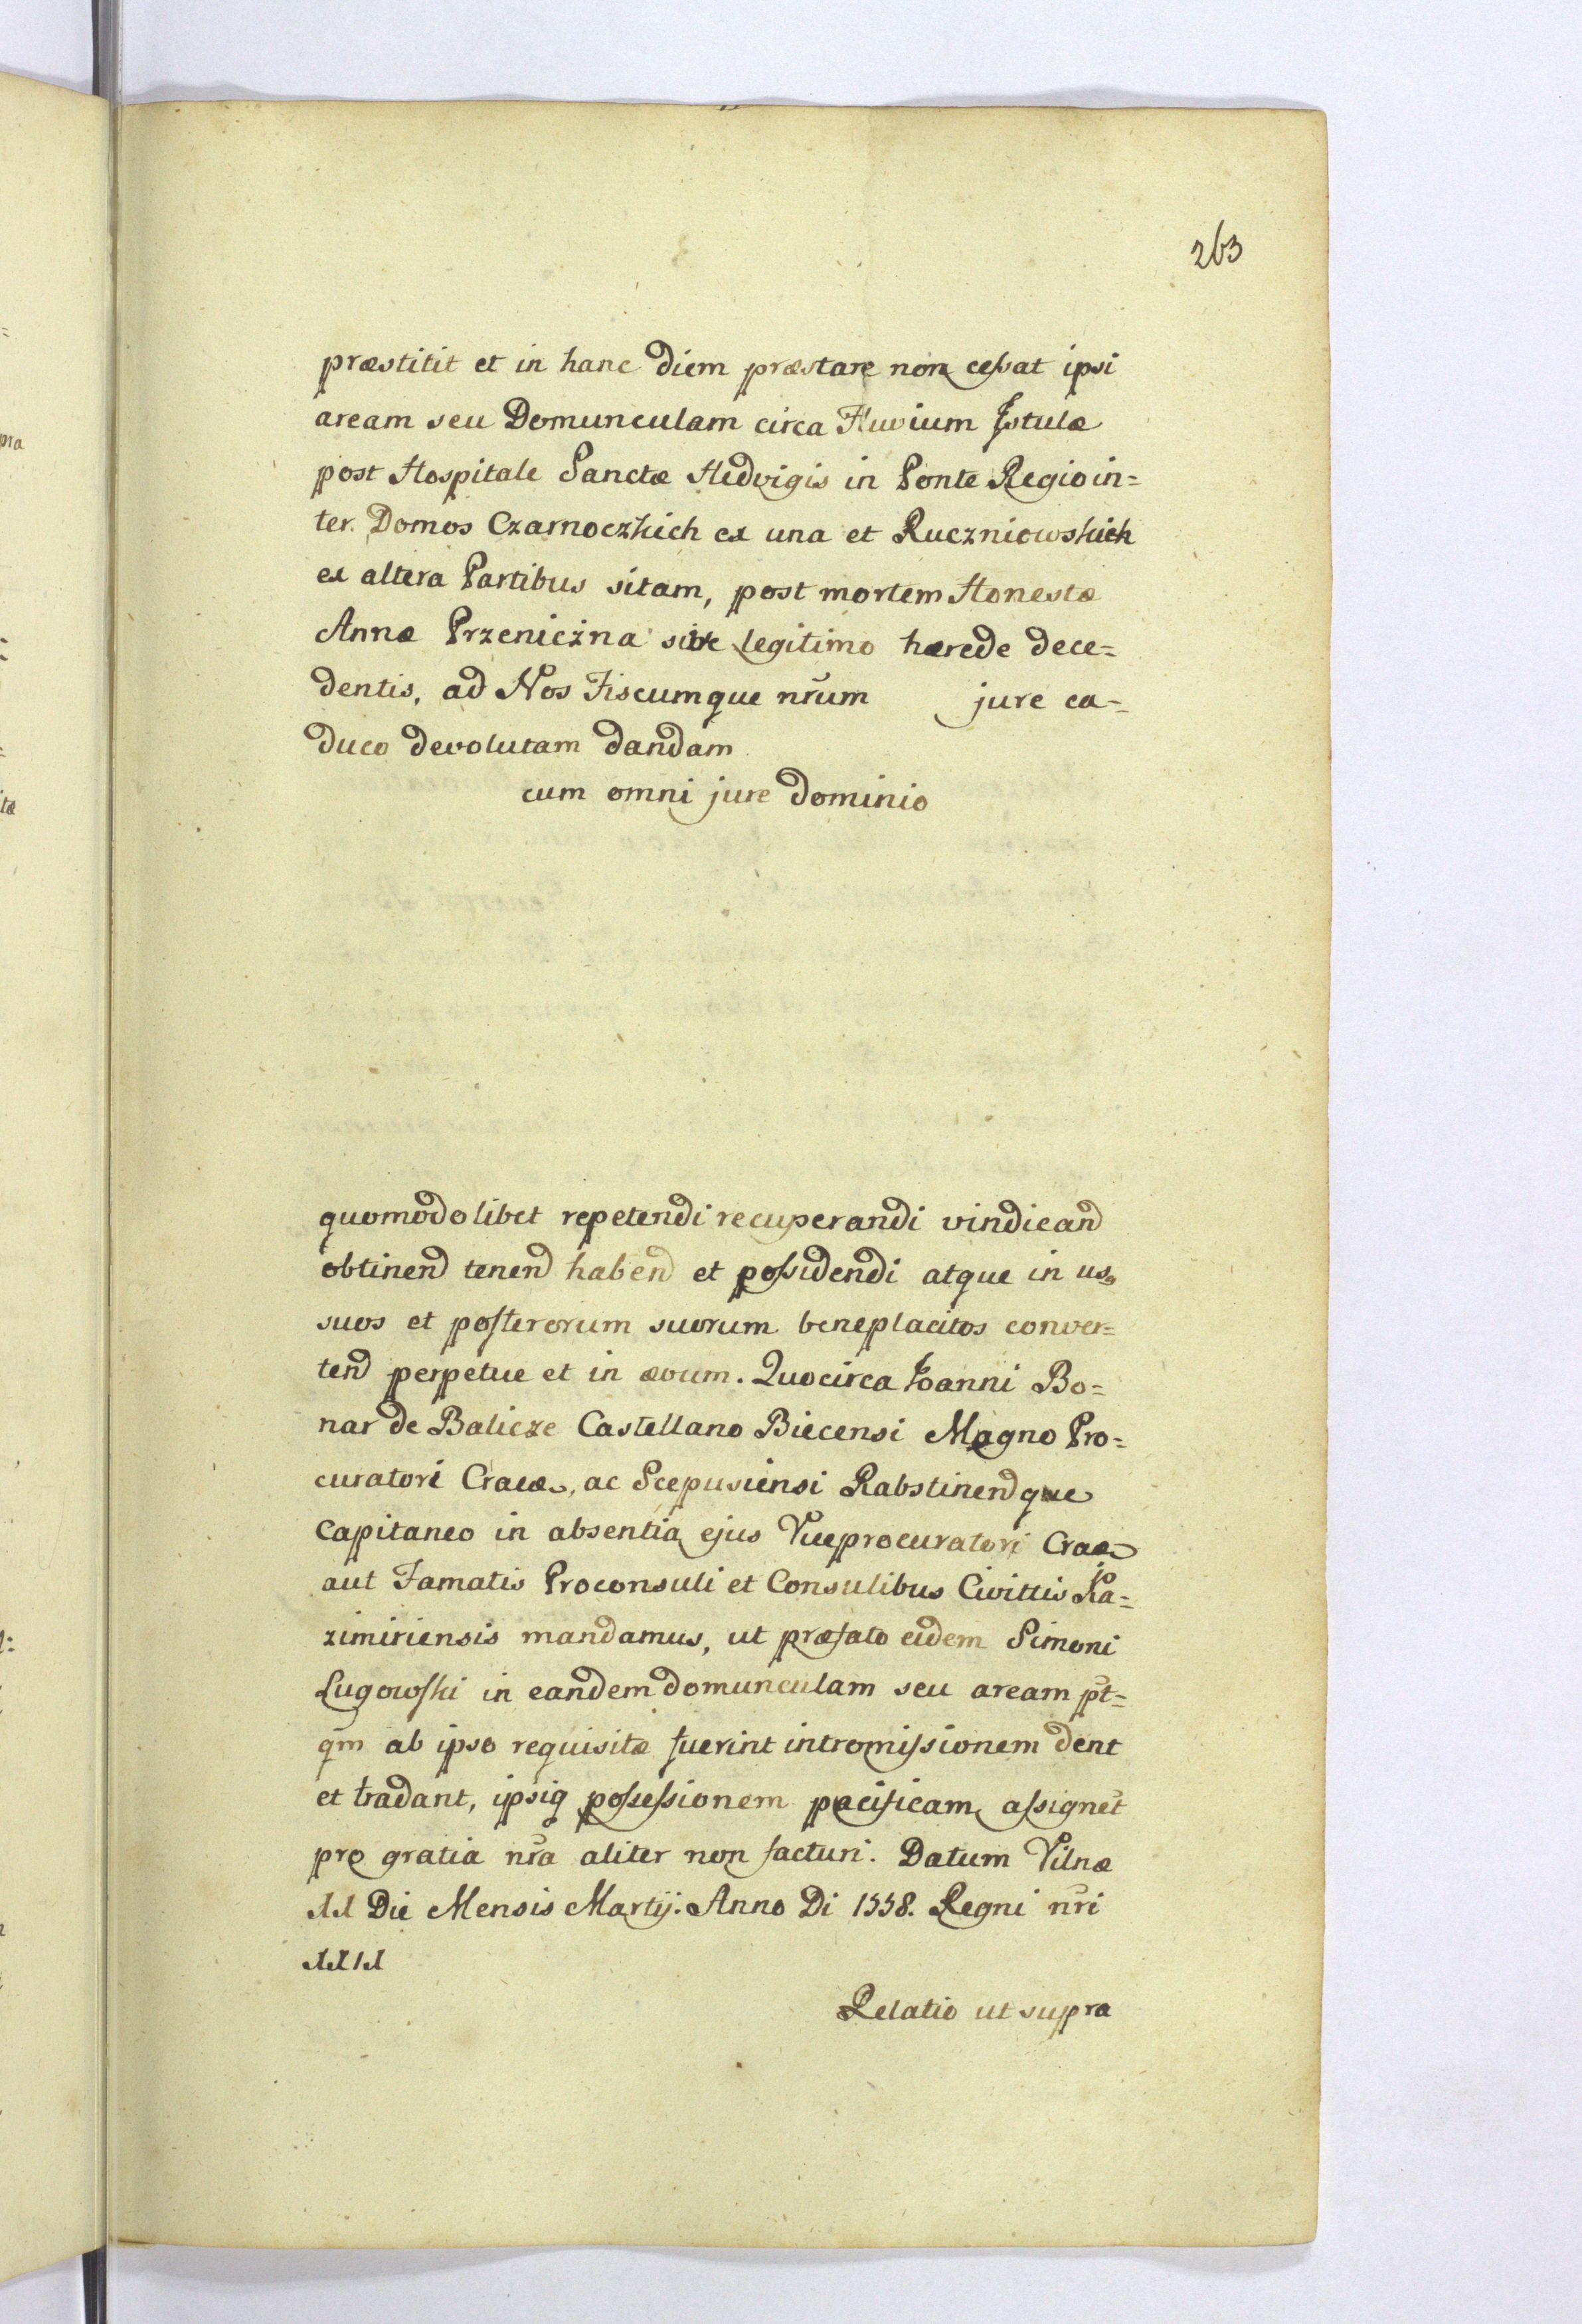 263
præstitit et in hanc diem præstare non cessat ipsi
aream seu Domunculam circa Fluvium Istulæ
post Hospitale Sanctæ Hedvigis in Ponte Regio in=
ter Domos Czarnoczkich ex una et Ruczniowskich
ex altera Partibus sitam, post mortem Honestæ
Annæ Przeniczna sine legitimo hærede dece=
dentis, ad Nos Fiscumque nr̃um jure ca=
duco devolutam dandam
cum omni jure dominio
quomodolibet repetendi recuperandi vindicand
obtinend tenend habend et possidendi atque in us.
suos et posterorum suorum beneplacitos conver=
tend perpetue et in ævum. Quocirca Ioanni Bo=
nar de Balicze Castellano Biecensi Magno Pro=
curatori Cracæ, ac Scepusiensi Rabstinendque
Capitaneo in absentia ejus Viceprocuratori Crac
aut Famatis Proconsuli et Consulibus Civittis Ka=
zimiriensis mandamus, ut præfato eidem Simoni
Lugowski in eandem domunculam seu aream pt̃=
qm̃ ab ipso requisitæ fuerint intromissionem dent
et tradant, ipsiq possessionem pacificam assignet̃
pro gratia nr̃a aliter non facturi. Datum Vilnæ
XX Die Mensis Martij. Anno Di 1558. Regni nr̃i
XXIX
Relatio ut supra